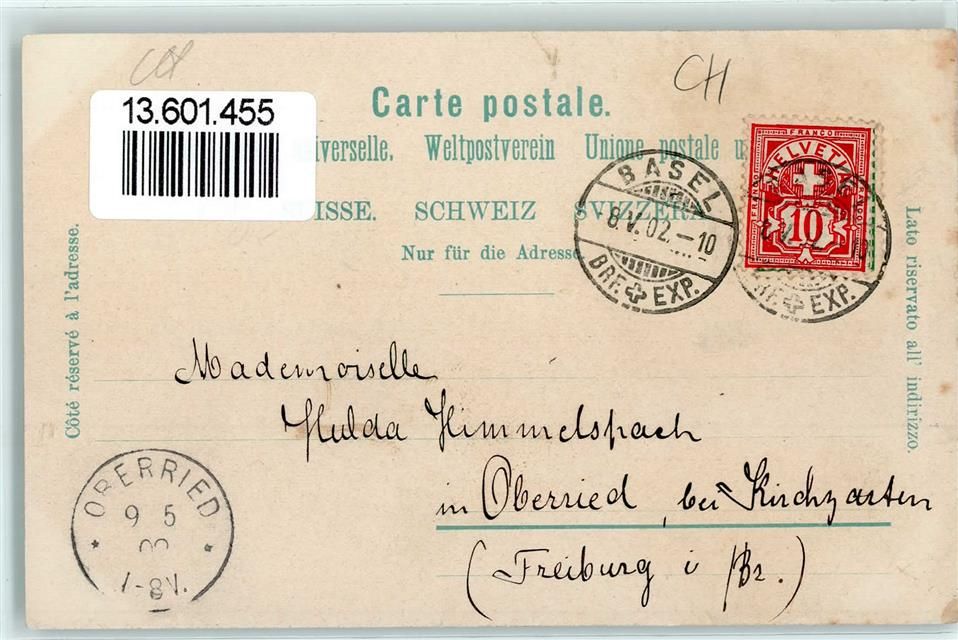 CH
CH
13.601.455
Carte postale.
universelle. Weltpostverein Unione postale
SUISSE. SCHWEIZ SVIZZERA
Nur für die Adresse
Côté réservé à l'adresse.
Lato riservato all' indirizzo.
FRANCO
HELVETIA
10
BASEL
8.V.02.-10
BRF. EXP.
BRF. EXP.
Mademoiselle
Hulda Himmelspach
in Oberried, bei Kirchzarten
(Freiburg i/Br.)
OBERRIED
9 5
7-8V.